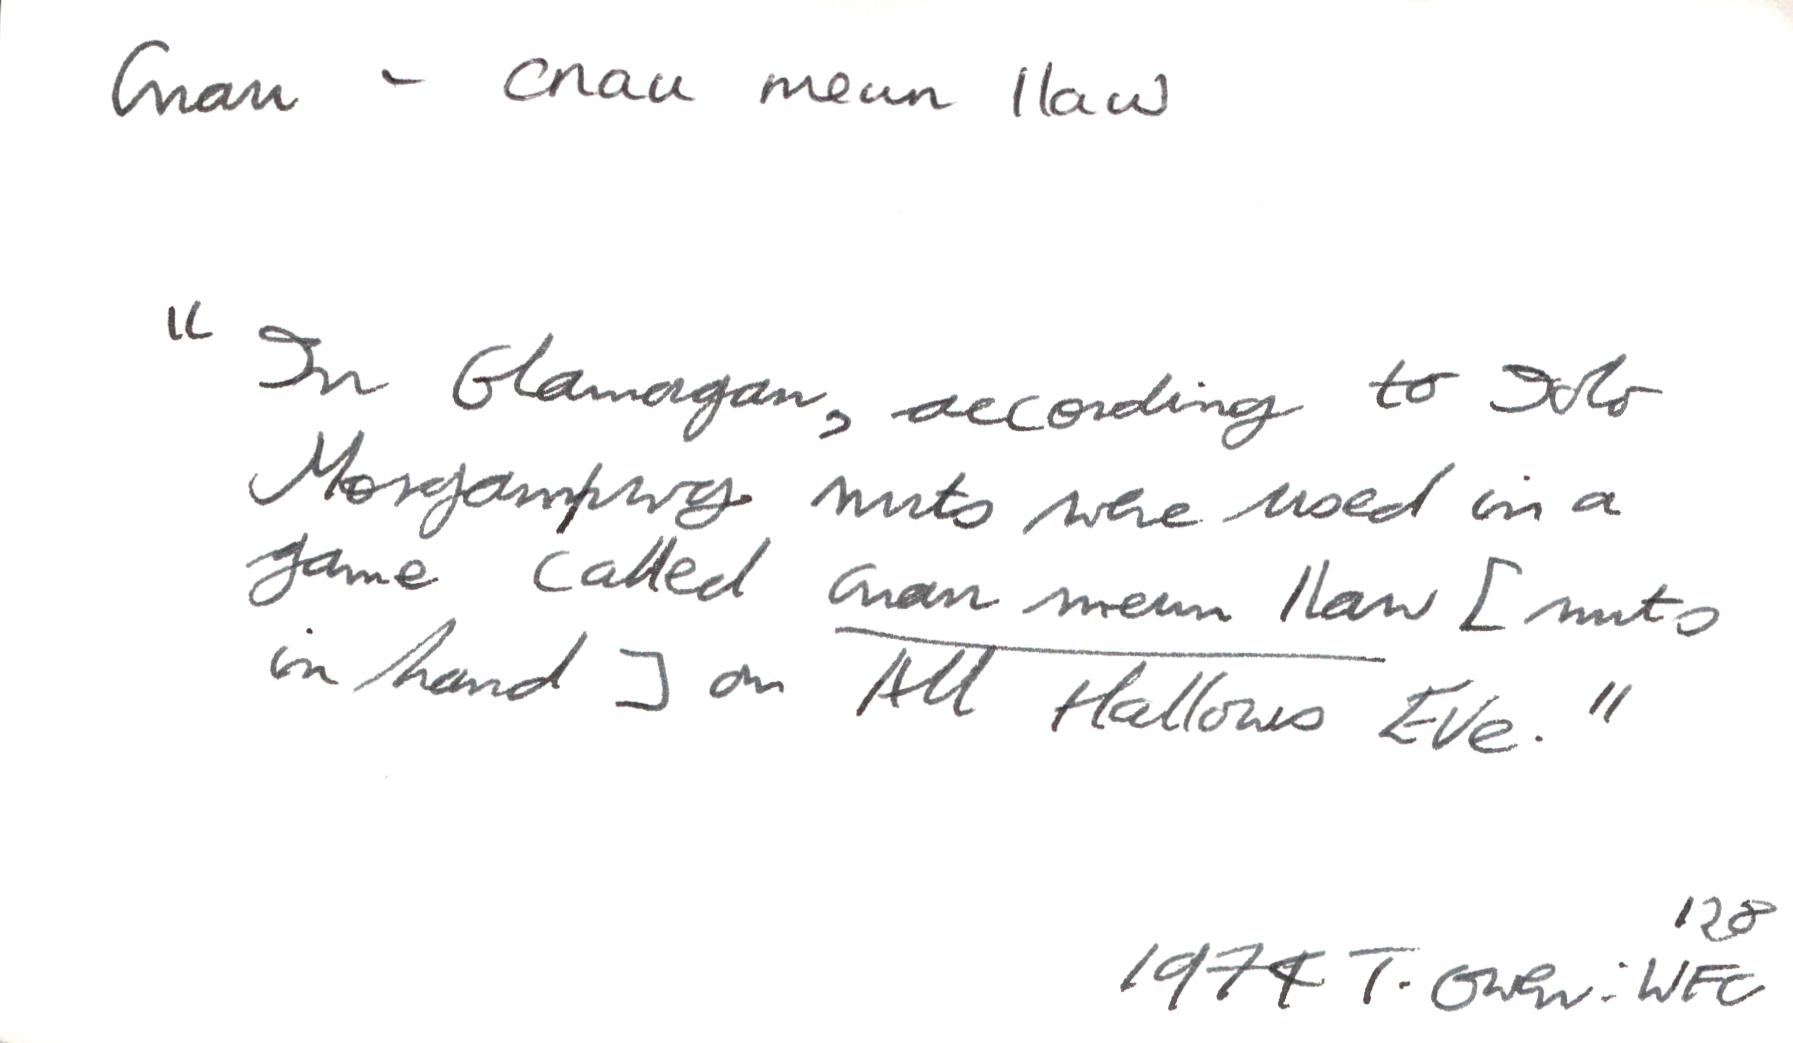 Cnau - cnau meun llaw
"In Glamorgan, according to Iolo
Morganwg nuts were used in a
game called cnau meun llaw [nuts
in hand] on All Hallows Eve."
128
1974 T. Owen: WFC